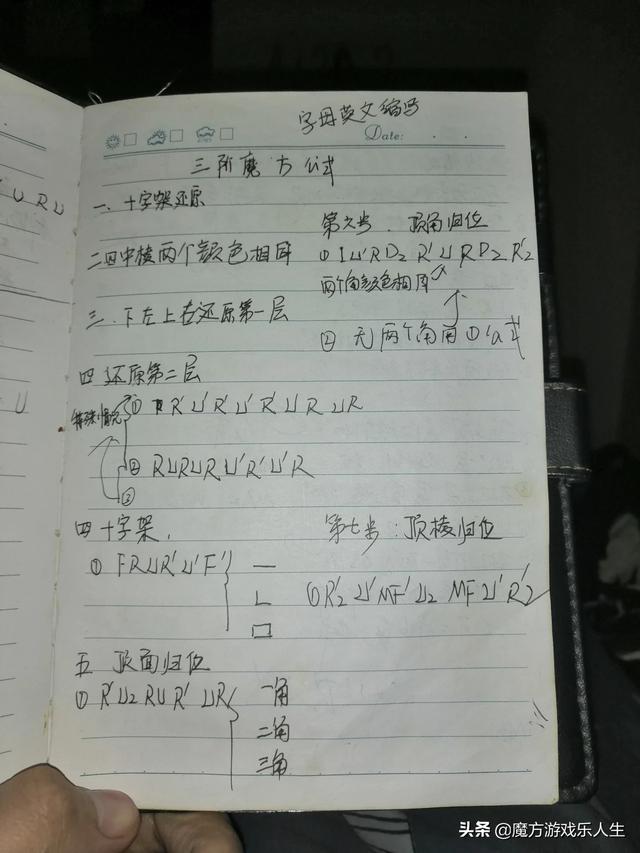 字母英文缩写
Date:
三阶魔方公式
一、十字架还原
二四中棱两个颜色相同
三、下左上右还原第一层
四 还原第二层
特殊情况
① R' U' R' U' R' U R U R
② R U R U R U' R' U' R
③
四 十字架、
① F R U R' U' F'
一
L
口
五 顶面归位
① R' U2 R U R' U R
一角
二角
三角
第六步、顶角归位
① U' R D2 R' U R D2 R'2
两个角颜色相同
② 无两个角用①'公式
第七步:顶棱归位
① R'2 U' MF' U2 MF U' R'2
U R U
U
头条 @魔方游戏乐人生